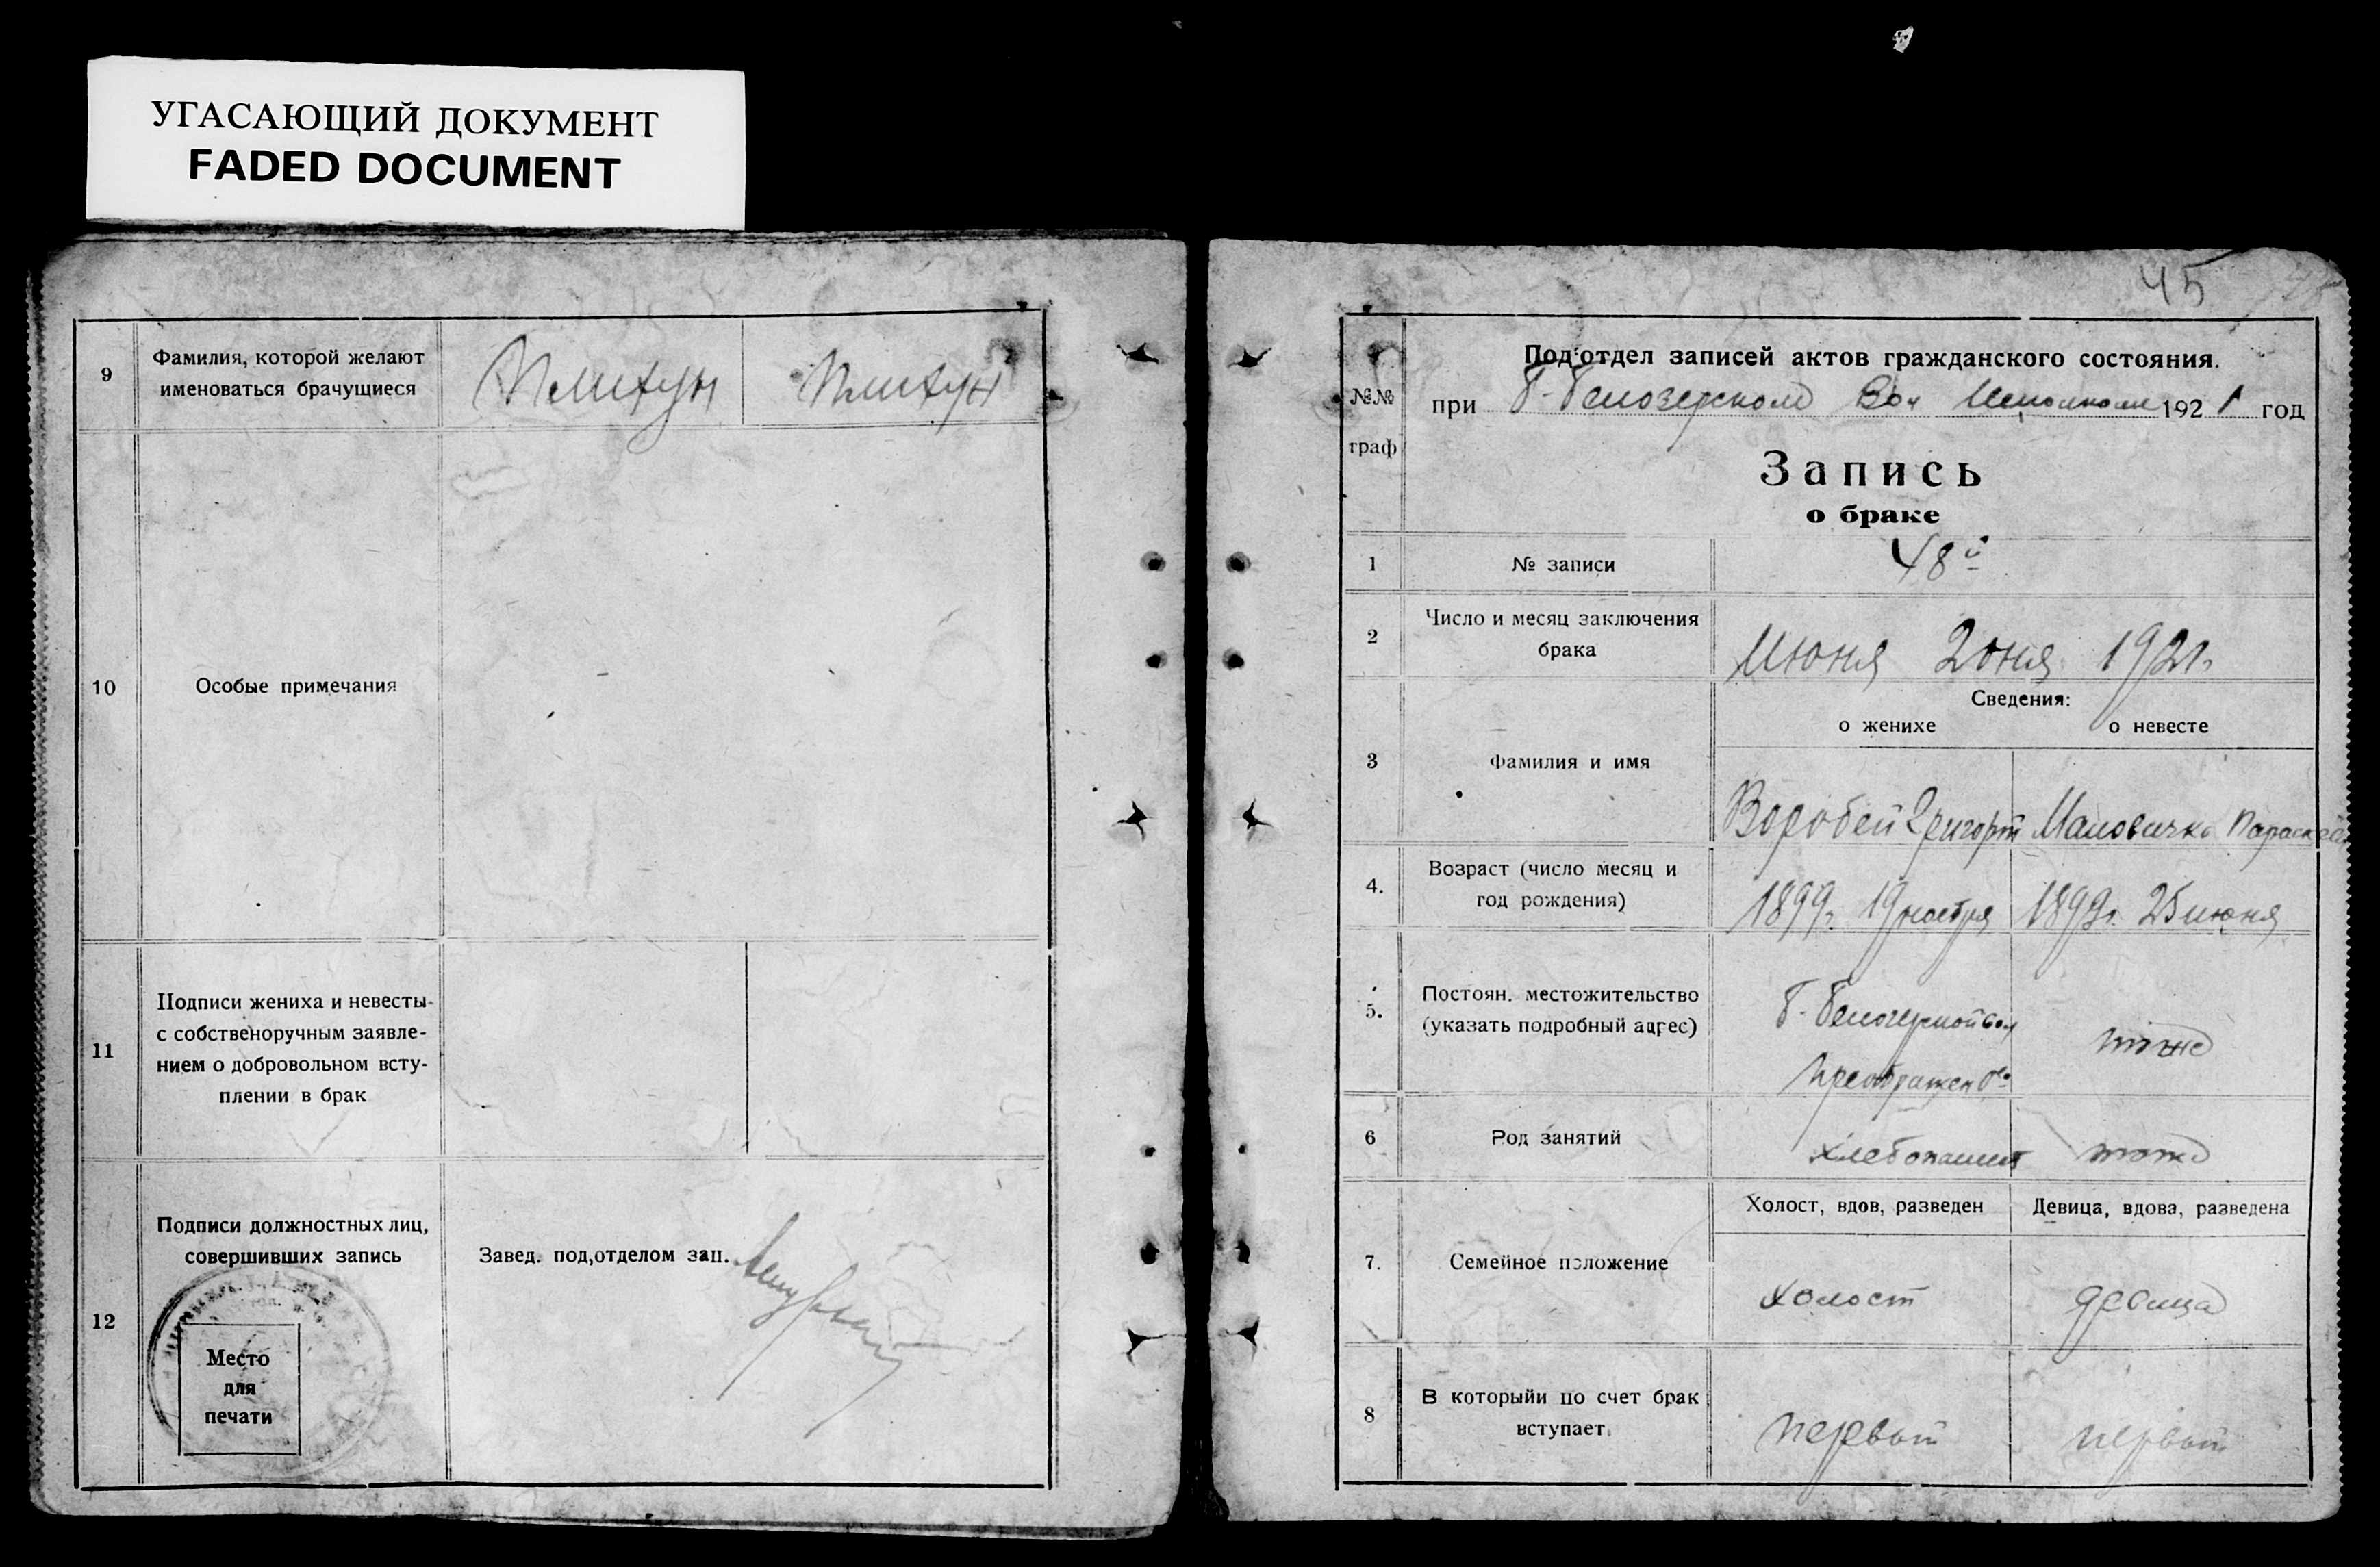 УГАСАЮЩИЙ ДОКУМЕНТ
FADED DOCUMENT
9
Фамилия, которой желают
именоваться брачущиеся
10
Особые примечания
11
Подписи жениха и невесты
с собственоручным заявле-
нием о добровольном всту-
плении в брак
12
Подписи должностных лиц,
совершивших запись
Завед. под,отделом зап.
Место
для
печати
45
№№
граф
Под'отдел записей актов гражданского состояния.
при Б-Белозерском Вол Исполкоме 1921 год
Запись
о браке
1
№ записи
48й
2
Число и месяц заключения
брака
Июня 2 дня 1921г.
Сведения:
о женихе
о невесте
3
Фамилия и имя
Воробей Григорій
Маловичко Параскева
4.
Возраст (число месяц и
год рождения)
1899г. 19 ноября
1899г. 25 июня
5.
Постоян. местожительство
(указать подробный адрес)
Б-Белозерской вол
тоже
6
Род занятий
хлебопашет
тоже
7.
Семейное положение
Холост, вдов, разведен
Девица, вдова, разведена
холост
девица
8
В которыйи по счет брак
вступает
первый
первый